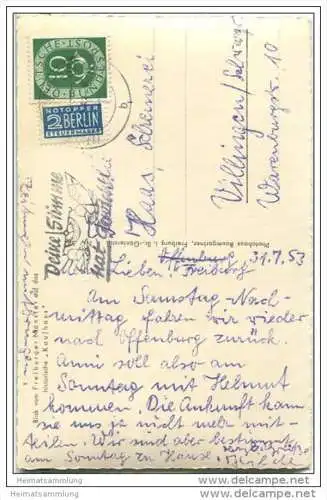 DEUTSCHE BUNDESPOST
10
NOTOPFER
2 BERLIN
STEUERMARKE
Deine Stimme
hat
Haas,
Villingen/Schwarzw.
Warenburgstr. 10
Photohaus Baumgartner, Freiburg i. Br.-Günterstal
Blick vom Freiburger Münster auf das
historische „Kaufhaus"
Offenburg 31.7.53
Freiburg
Lieben!
Am Samstag Nach-
mittag fahren wir wieder
nach Offenburg zurück.
Anni soll also am
Sonntag mit Helmut
kommen. Die Ankunft kann
sie uns ja nicht mehr mit-
teilen. Wir sind aber bestimmt
am Sonntag zu Hause.
Heimatsammlung
www.heimatsammlung.de